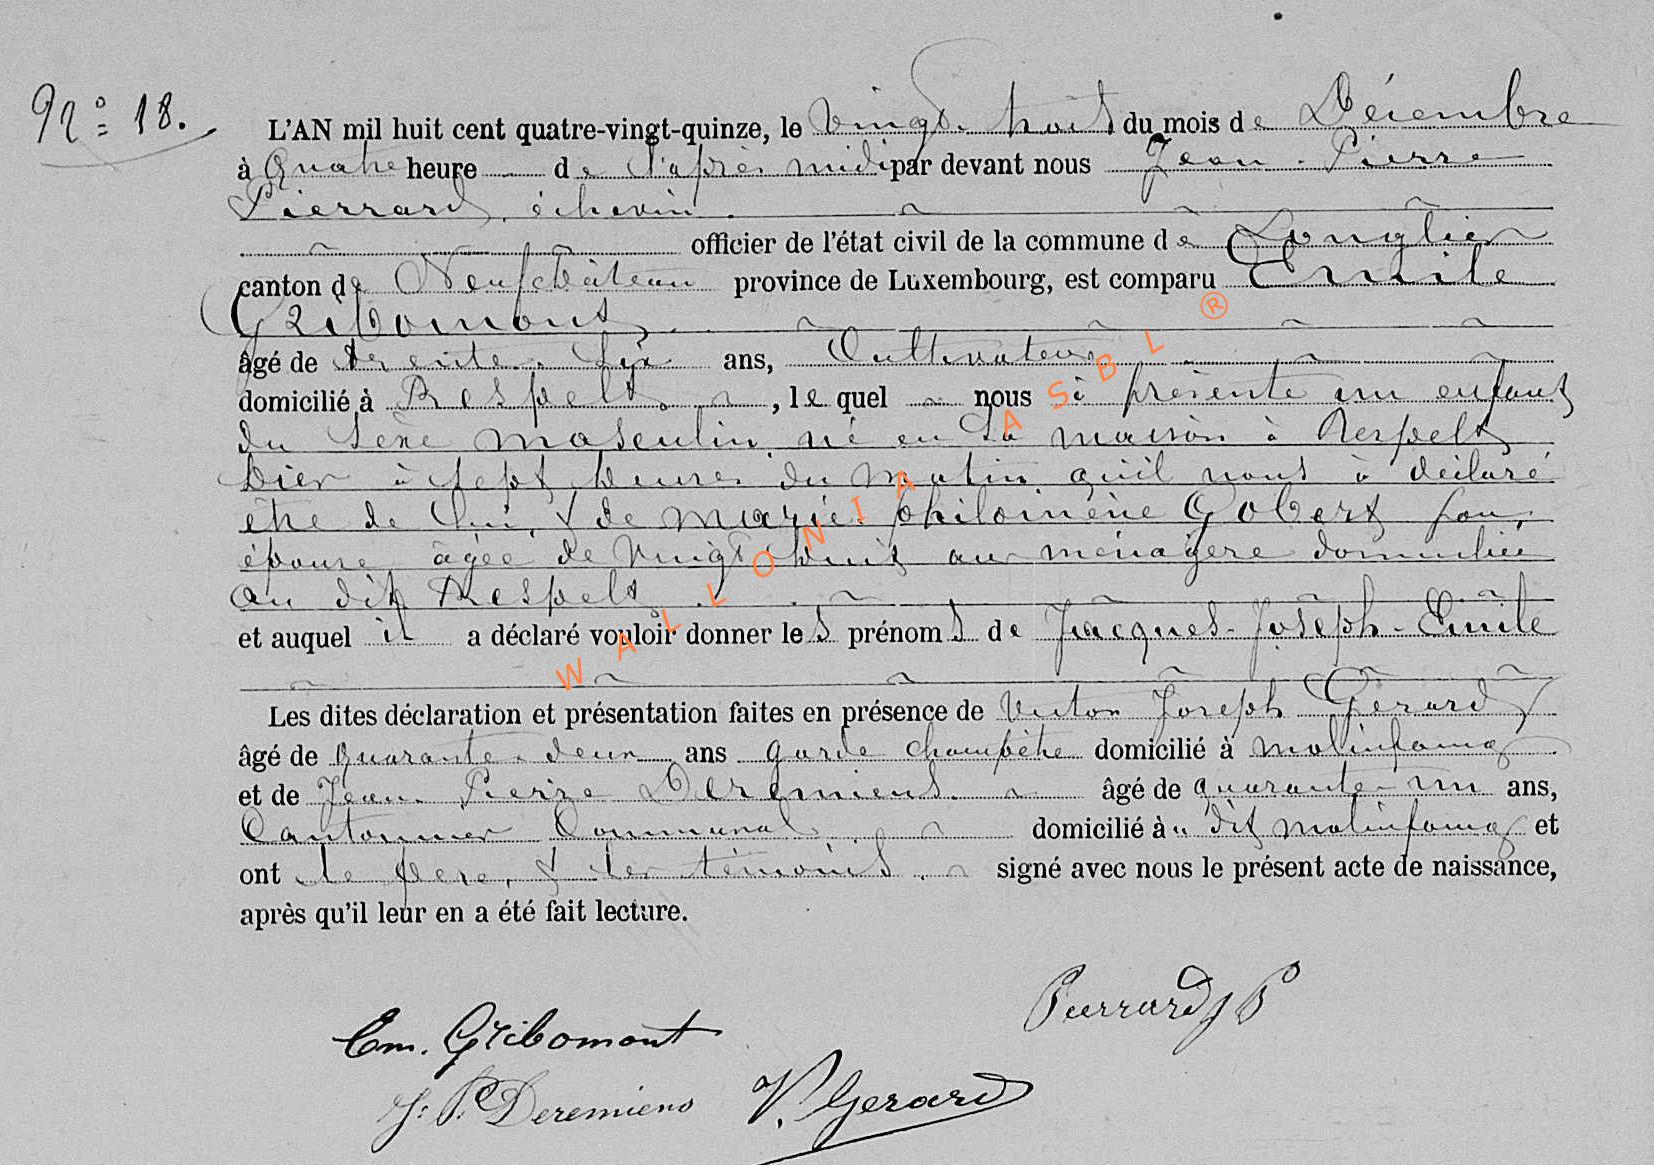 N° 18.
L'AN mil huit cent quatre-vingt-quinze, le Vingt-huit du mois de Décembre
à Quatre heure de l'après midi par devant nous Jean-Pierre
Pierrard, échevin
officier de l'état civil de la commune de Longlier
canton de Neufchâteau province de Luxembourg, est comparu Emile
Gribomont
âgé de trente-six ans, Cultivateur
domicilié à Respelt, lequel nous à présenté un enfant
du sexe masculin, né en sa maison à Respelt
hier à sept heures du matin qu'il nous à déclaré
être de lui, & de Marie philomène Gobert son
épouse âgée de vingt-huit ans ménagère domiciliée
au dit Respelt
et auquel il a déclaré vouloir donner les prénoms de Jacques-Joseph-Emile
Les dites déclaration et présentation faites en présence de Victor Joseph Gérard
âgé de quarante-deux ans garde champêtre domicilié à molinfaing
et de Jean-Pierre Deremiens âgé de quarante-un ans,
Cantonnier Communal domicilié à dit molinfaing et
ont le père, & les témoins signé avec nous le présent acte de naissance,
après qu'il leur en a été fait lecture.
Pierrard J P
Em. Gribomont
J: P. Deremiens V. Gerard
WALLONIA ASBL ®